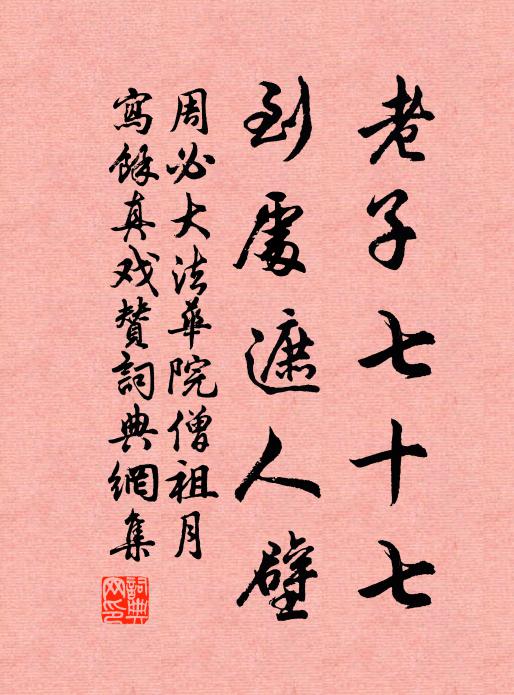 老子七十七
到處遮人壁
周必大法華院僧祖月
寫餘真戏贊詞典網集
詞典網印